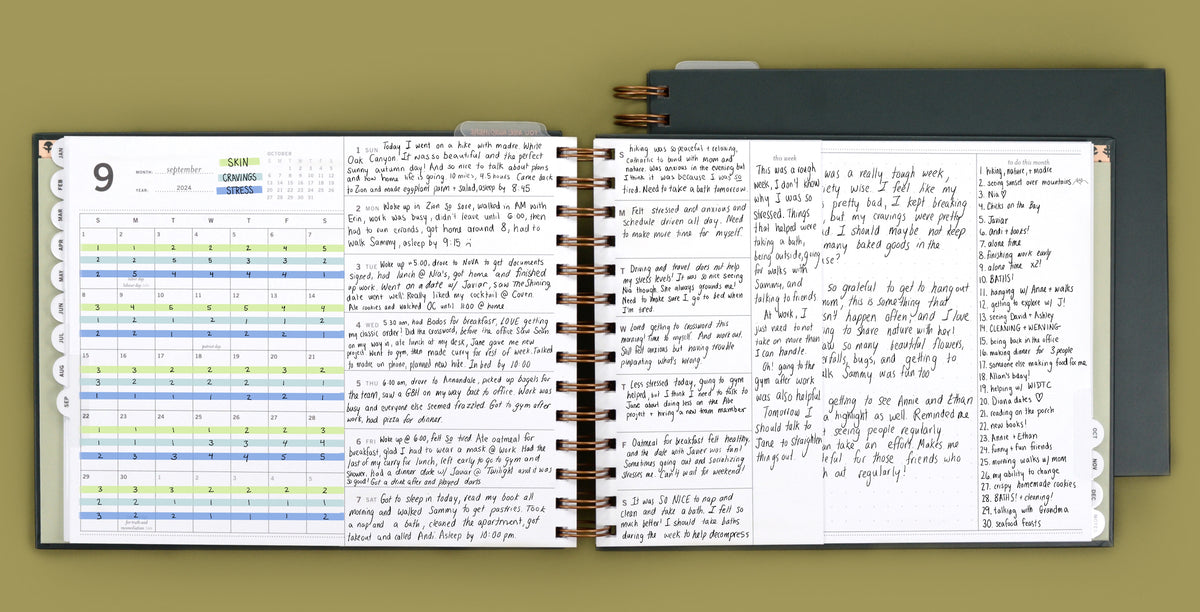 JAN
FEB
MAR
APR
MAY
JUN
JUL
AUG
SEP
9
MONTH: september
YEAR: 2024
SKIN
CRAVINGS
STRESS
OCTOBER
S M T W T F S
1 2 3 4 5
6 7 8 9 10 11 12
13 14 15 16 17 18 19
20 21 22 23 24 25 26
27 28 29 30 31
S M T W T F S
1 2 3 4 5 6 7
1 1 2 2 2 4 5
2 2 5 5 3 3 2
2 5 4 4 4 4 1
labor day
8 9 10 11 12 13 14
3 4 5 5 5 4 4
1 2 1 2 1 1 2
2 2 1 2 1 1 1
patriot day
15 16 17 18 19 20 21
5 3 3 3 3 2 2
3 2 2 2 2 1 2
1 1 1 1 2 2 1
22 23 24 25 26 27 28
1 1 1 1 2 2 3
1 1 1 3 3 4 4
2 3 3 4 4 5 5
29 30 1 2 3 4 5
3 3 3 3 2 2 2
2 2 1 1 1 1 1
3 2 2 1 1 1 2
1 SUN Today I went on a hike with madre. White
Oak Canyon. It was so beautiful and the perfect
sunny autumn day! And so nice to talk about plans
and how home life is going. 10 miles, 4.5 hours. Came back
to Zion and made eggplant parm + salad, asleep by 8:45
2 MON Woke up in Zion so sore, walked in AM with
Erin, work was busy, didn't leave until 6:00, then
had to run errands, got home around 8, had to
walk Sammy, asleep by 9:15
3 TUE Woke up 5:00, drove to NoVA to get documents
signed, had lunch @ Nia's, got home and finished
up work. Went on a date w/ Javiar, saw The Shining
date went well! Really liked my cocktail @ Coven
Ate cookies and watched OC until 11:00 @ home
4 WED 5:30 am, had Bodos for breakfast, LOVE getting
my classic order! Did the crossword, before the office Saw Sean
on my way in, ate lunch at my desk, Jane gave me new
project. Went to gym, then made curry for rest of week. Talked
to madre on phone, planned new hike. In bed by 10:00
5 THU 6:00 am, drove to Annandale, picked up bagels for
the team, saw a GBH on my way back to office. Work was
busy and everyone else seemed frazzled. Got to gym after
work, had pizza for dinner.
6 FRI Woke up @ 6:00, felt so tired Ate oatmeal for
breakfast, glad I had to wear a mask @ work. Had the
last of my curry for lunch, left early to go to gym and
shower. Had a dinner date w/ Javiar @ Twilight and it was
so good! Got a drink after and played darts.
7 SAT Got to sleep in today, read my book all
morning and walked Sammy to get pastries. Took
a nap and a bath, cleaned the apartment, got
takeout and called Andi. Asleep by 10:00 pm.
S hiking was so peaceful + relaxing,
cathartic to bond with mom and
nature. Was anxious in the evening but
I think it was because I was so
tired. Need to take a bath tomorrow
M Felt stressed and anxious and
schedule driven all day. Need
to make more time for myself.
T Driving and travel does not help
my stress levels! It was so nice seeing
Nia though. She always grounds me!
Need to make sure I go to bed when
I'm tired.
W Loved getting to crossword this
morning! Time to myself. And work out.
Still felt anxious but having trouble
pinpointing what's wrong.
T Less stressed today, going to gym
helped, but I think I need to talk to
Jane about doing less on the
project + hiring a new team member
F Oatmeal for breakfast felt healthy,
and the date with Javier was fun!
Sometimes going out and socializing
stresses me. Can't wait for weekend!
S It was SO NICE to nap and
clean and take a bath. I felt so
much better! I should take baths
during the week to help decompress
this week
This was a rough
week, I don't know
why I was so
stressed. Things
that helped were
taking a bath,
being outside, going
for walks with
Sammy, and
talking to friends
At work, I
just need to not
take on more than
I can handle.
Oh! going to the
gym after work
was also helpful
Tomorrow I
should talk to
Jane to straighten
things out.
was a really tough week,
iety wise. I feel like my
pretty bad, I kept breaking
, but my cravings were pretty
d. I should maybe not keep
many baked goods in the
se?
so grateful to get to hang out
mom, this is something that
sn't happen often, and I love
ng to share nature with her!
aw so many beautiful flowers,
erfalls, bugs, and getting to
lk Sammy was fun too
getting to see Annie and Ethan
a highlight as well. Reminded me
t seeing people regularly
an take an effort. Makes me
teful for those friends who
h out regularly!
to do this month
1. hiking, nature, + madre
2. seeing sunset over mountains
3. Nia ♡
4. Chicks on the Bay
5. Javiar
6. Andi + bones!
7. alone time
8. finishing work early
9. alone time x2!
10. BATHS!
11. hanging w/ Anne + walks
12. getting to explore w/ J!
13. seeing David + Ashley
14. CLEANING + WEANING-
15. being back in the office
16. making dinner for 3 people
17. someone else making food for me
18. Kilian's bday!
19. helping w/ WIDTC
20. Diana dates ♡
21. reading on the porch
22. new books!
23. Annie + Ethan
24. funny + fun friends
25. morning walks w/ mom
26. my ability to change
27. crispy homemade cookies
28. BATHS! + cleaning!
29. talking with Grandma
30. seafood feasts
OCT
NOV
DEC